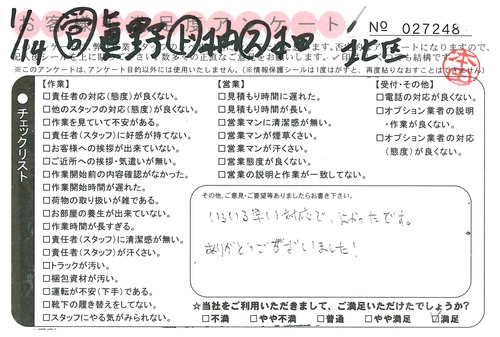 お客様満足度アンケート
No 027248
1/14
北区
※このアンケートは、アンケート目的以外には使用いたしません。(※情報保護シールは1度がすと、再度貼りなおすことはできません)
チェックリスト
【作業】
□責任者の対応(態度)が良くない。
□他のスタッフの対応(態度)が良くない。
□作業を見ていて不安がある。
□責任者(スタッフ)に好感が持てない。
□お客様への挨拶が出来ていない。
□ご近所への挨拶・気遣いが無い。
□作業開始前の内容確認がなかった。
□作業開始時間が遅れた。
□荷物の取り扱いが雑である。
□お部屋の養生が出来ていない。
□作業時間が長すぎる。
□責任者(スタッフ)に清潔感が無い。
□責任者(スタッフ)が汗くさい。
□トラックが汚い。
□梱包資材が汚い。
□運転が不安(下手)である。
□靴下の履き替えをしてない。
□スタッフにやる気がみられない。
【営業】
□見積もり時間に遅れた。
□見積もり時間が長い。
□営業マンに清潔感が無い。
□営業マンが煙草くさい。
□営業マンが汗くさい。
□営業態度が良くない。
□営業の説明と作業が一致してない。
【受付・その他】
□電話の対応が良くない。
□オプション業者の説明
・作業が良くない。
□オプション業者の対応
(態度)が良くない。
その他、ご意見・ご要望等ありましたらお書き下さい。
いろいろ早い対応で、よかったです。
ありがとうございました!
☆当社をご利用いただきまして、ご満足いただけたでしょうか?
□不満 □やや不満 □普通 □やや満足 □満足